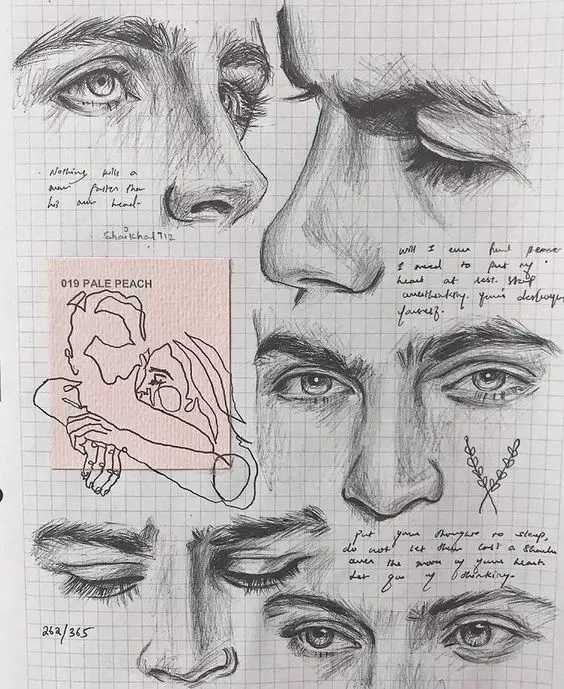 Nothing kills a
man faster than
his own head.
Shaikha1712
019 PALE PEACH
Will I ever find peace
I need to put my
heart at rest. Stop
overthinking. You're destroying
yourself.
put your thoughts to sleep,
do not let them cast a shadow
over the moon of your heart.
Let go of thinking.
262/365